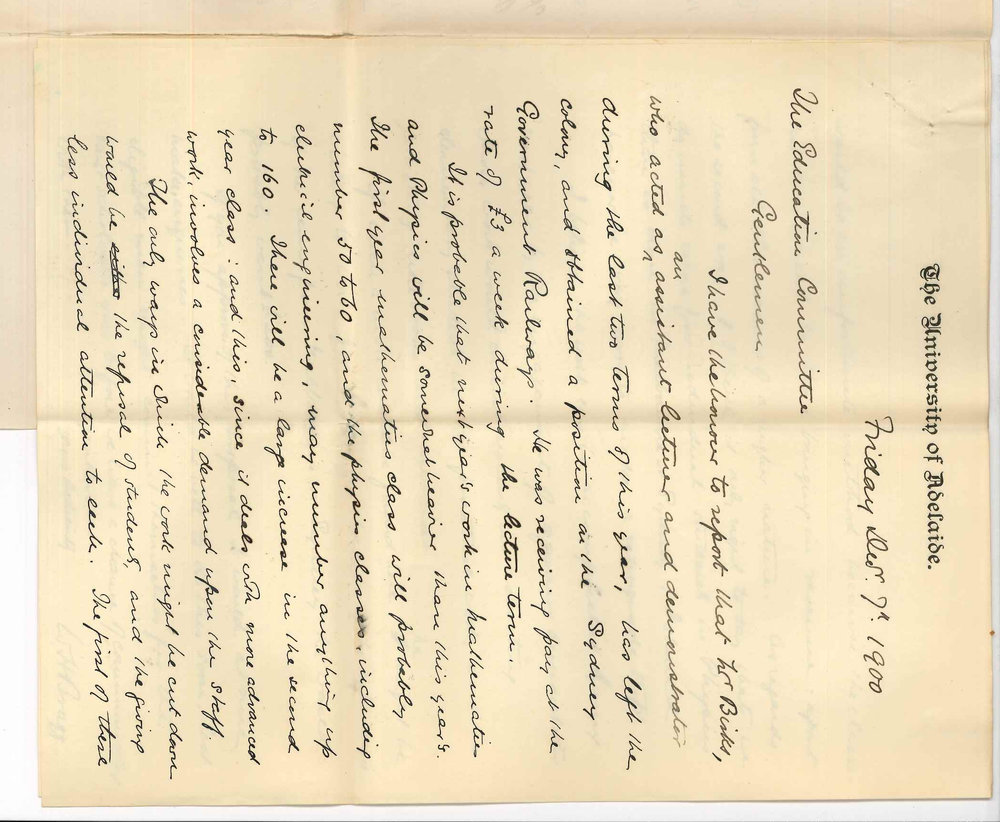 The University of Adelaide.
Friday Decr. 7th 1900
The Education Committee
Gentlemen
I have the honor to report that Mr Birks,
who acted as an assistant lecturer and demonstrator
during the last two terms of this year, has left the
colony, and obtained a position in the Sydney
Government Railways. He was receiving pay at the
rate of £3 a week during the lecture term.
It is probable that next year's work in Mathematics
and Physics will be somewhat heavier than this year's.
The first year mathematics class will probably
number 50 to 60, and the physics classes, including
electric'l engineering, may number anything up
to 160. There will be a large increase in the second
year class: and this, since it deals with more advanced
work, involves a considerable demand upon the staff.
The only ways in which the work might be cut down
would be either the refusal of students, and the giving
less individual attention to each. The first of these